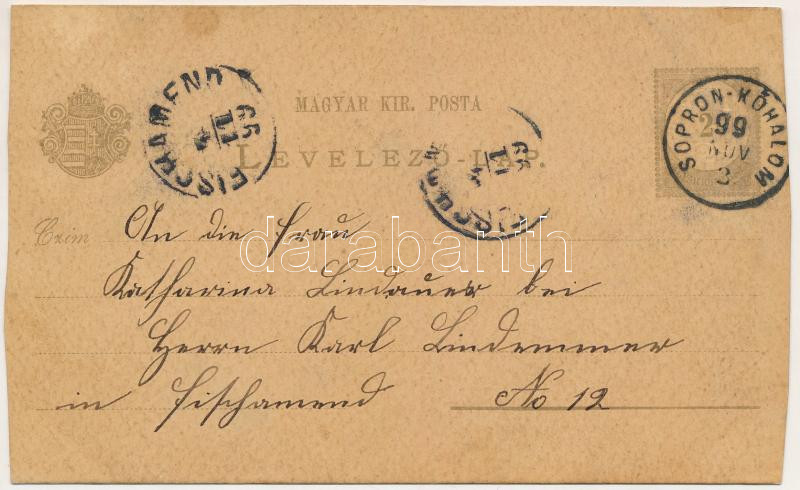 MAGYAR KIR. POSTA
LEVELEZŐ-LAP.
FISCHAMEND
99
11
4
99
11
4
SOPRON-KŐHALOM
99
NOV
3
2
Czim
An die Frau
Katharina Lindauer bei
Herrn Karl Lindemmer
in Fischamend No 12
darabanth